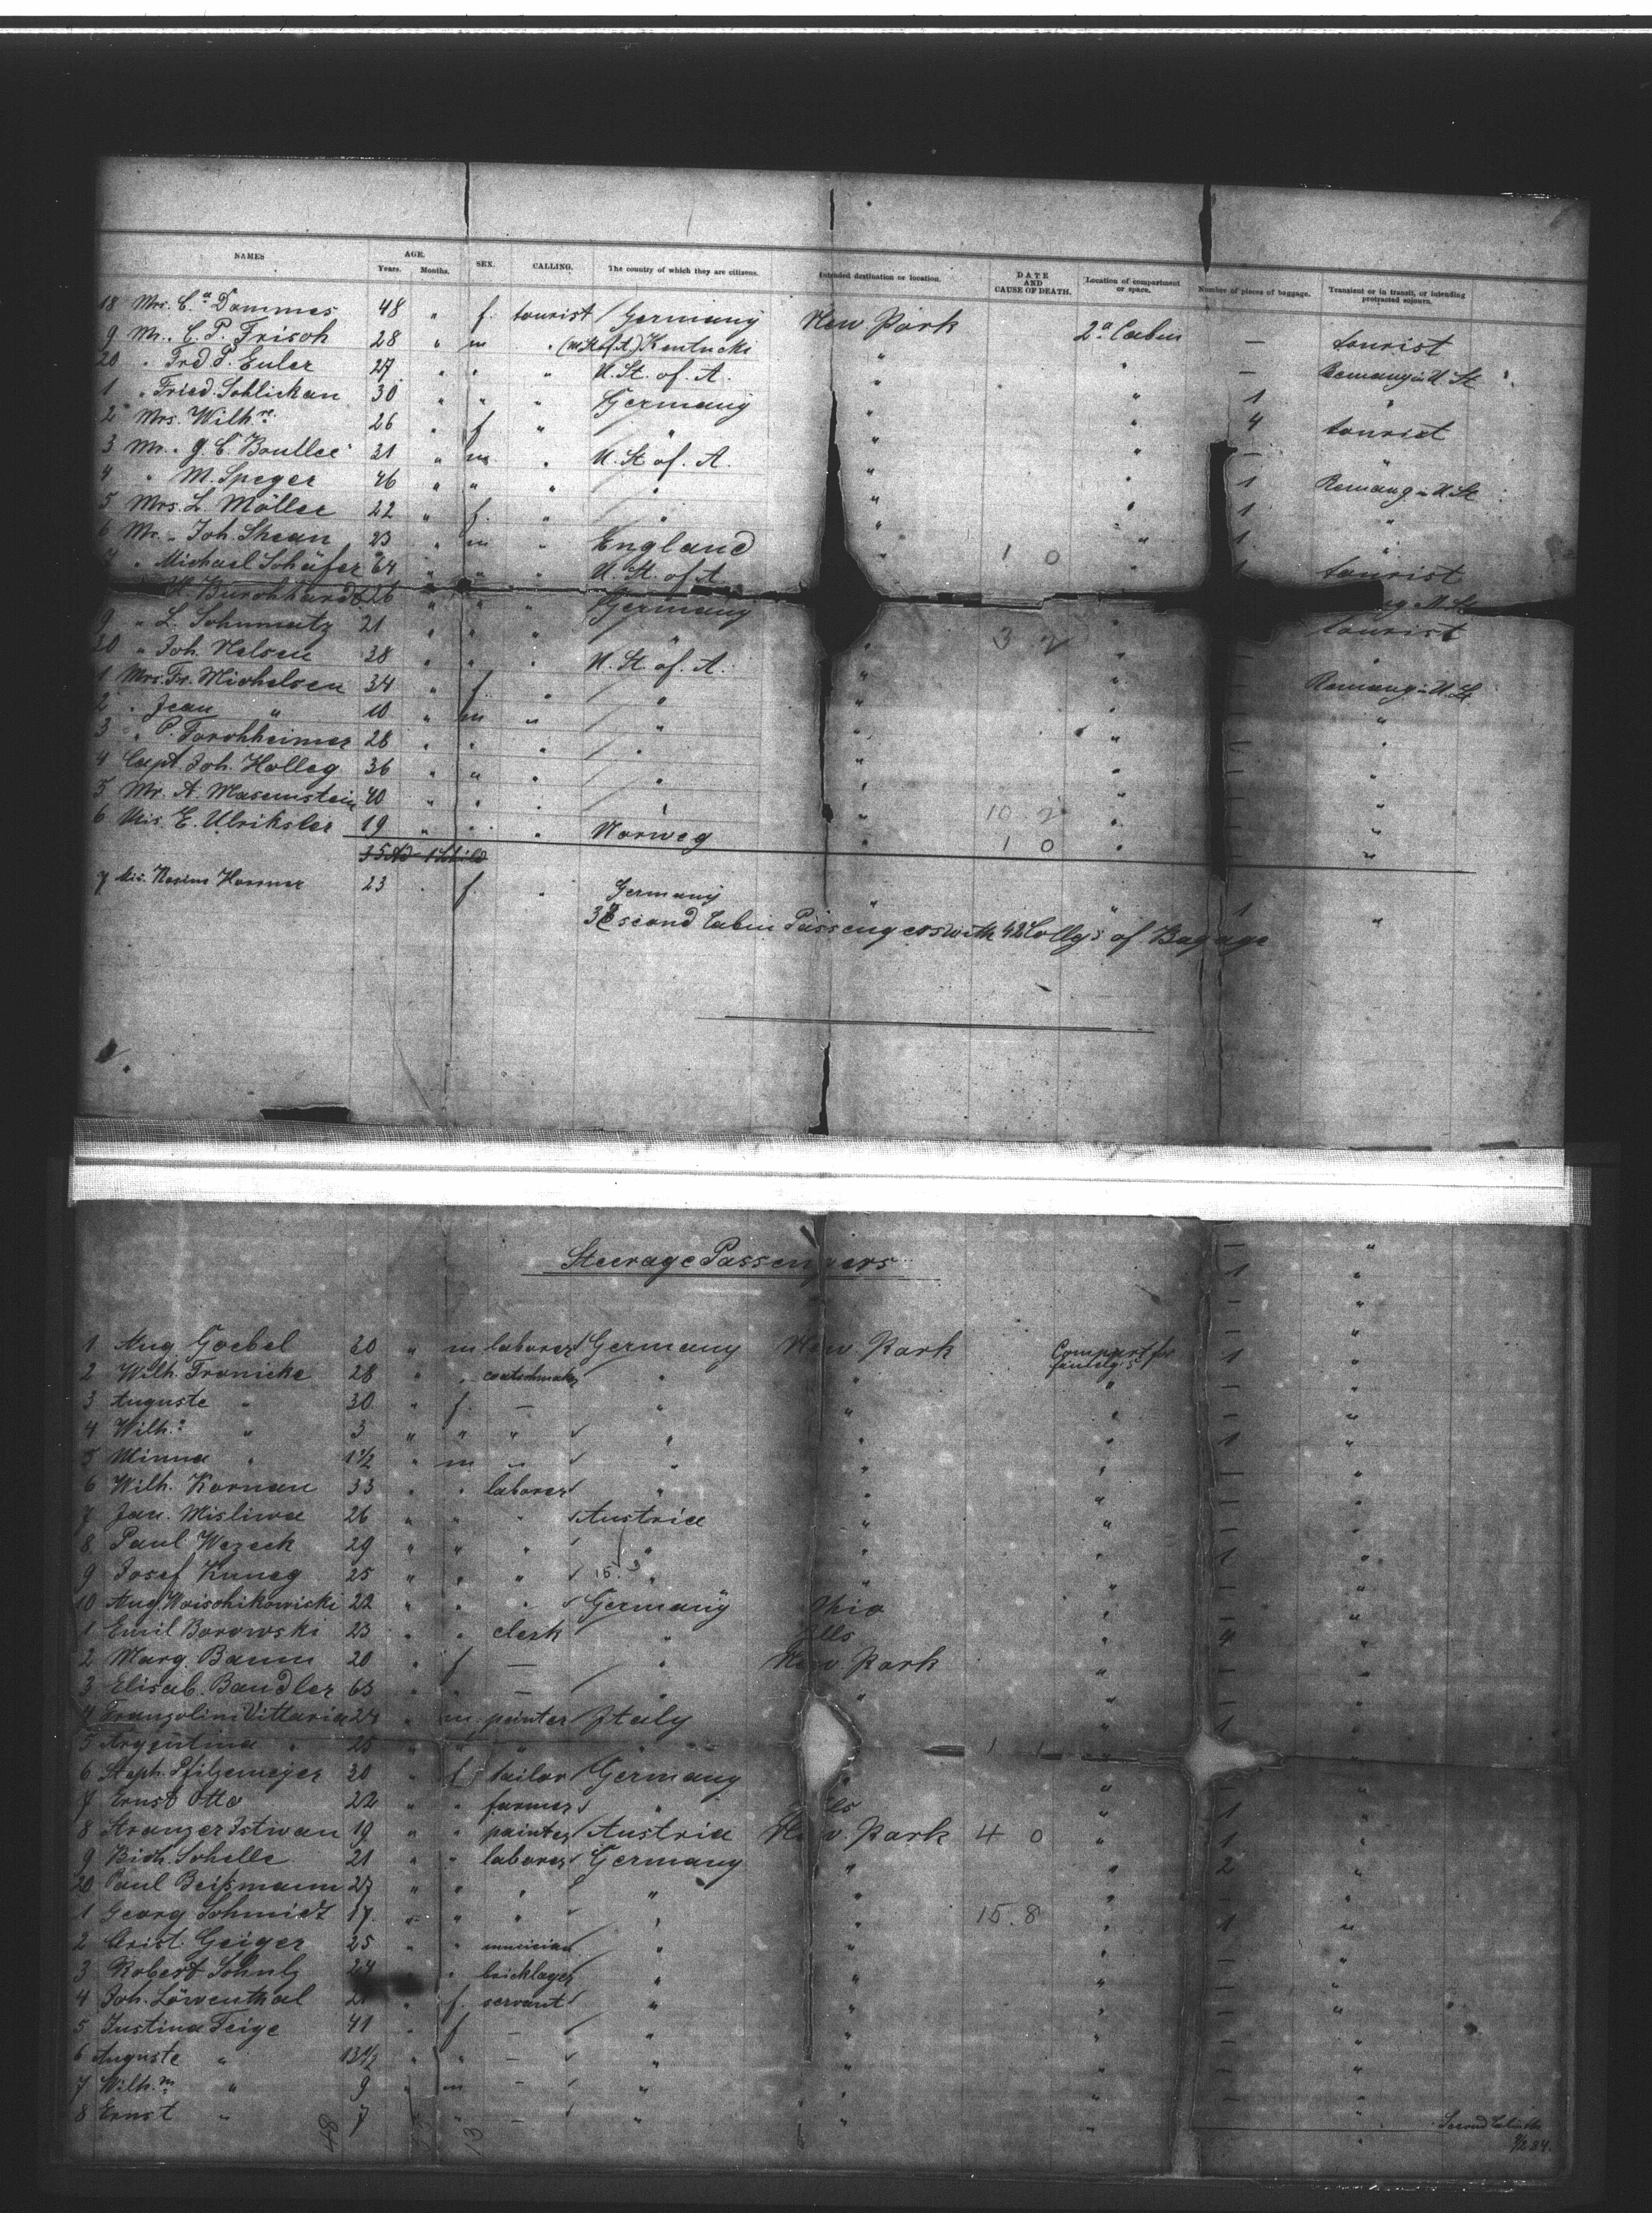 NAMES AGE. Years. Months. SEX. CALLING. The country of which they are citizens. Intended destination or location. DATE AND CAUSE OF DEATH. Location of compartment or space. Number of pieces of baggage. Transient or in transit, or intending protracted sojourn.
18 Mrs. C.a Dammes 48 " f. tourist / Germany New York 2a Cabin — tourist
9 Mr. C. P. Frisch 28 " m " (U.St.of.A) Kentucki " " —
20 " Frd P. Euler 27 " " " U. St. of. A. " " 1 "
1 " Fried. Schlickan 30 " " " Germany " " 4 tourist
2 Mrs. Wilh.ne 26 " f " / " " " —
3 Mr. " 31 " m " U. St of. A. " " 1
4 " M. Speyer 46 " " " / " " " 1 "
5 Mrs. L. Möller 22 " f. " / " " " 1 "
6 Mr. " Joh. Shean 23 " m " England " 1 0 " tourist
7 " Michael Schäfer 64 " " " U. St. of A
H. Burchhardt 26 " " " Germany tourist
9 " L. Schumatz 21 " " " " " 3 2 " — "
30 " Joh. Nelsen 38 " " " U. St. of. A. " " —
1 Mrs. Fr. Michelsen 34 " f. " / " " " — "
2 " Jean " 10 " m " / " " " — "
3 " P. Forchheimer 28 " " " / " " " — "
4 Capt. Joh. Holleg 36 " " " / " " " — "
5 Mr. A. Masemstein 40 " " " / " " 10. 2 " — "
6 Mis. E. Ulriksler 19 " " " Norweg " 1 0 " — "
35 Ad 1 Child
7 Mis. Hammer 23 " f. " Germany " " 1 "
second Cabin Passengers with 42 Collys of Bagage
Steerage Passengers
1 Aug. Goebel 20 " m laborer / Germany New York Compart for familys 1 "
2 Wilh. Fronicke 28 " " " " " — "
3 Auguste " 30 " f. — " " " — "
4 Wilh.e " 3 " " " " " " 1 "
5 Minna " 1½ " m " " " " — "
6 Wilh. Kornau 33 " " laborer " " " — "
7 Jan. Misliwa 26 " " " Austria " " — "
8 Paul Wezeck 29 " " " " " " 1 "
9 Josef Kuneg 25 " " " 15. 3 " " " — "
10 Aug. Woischikowiski 22 " " " Germany Ohio " — "
1 Emil Borowski 23 " " clerk " Ills " 4 "
2 Marg. Baum 20 " f — / " New York " — "
3 Elisab. Bandler 63 " " — / " " " — "
4 Vittaria 24 " m. painter / Italy " 1 "
5 Argentina " 25 " " " " 1 1 " "
6 Steph. Pfilzemeyer 30 " f tailor / Germany " " — "
7 Ernst Otto 22 " " farmer " " 1 "
8 Stranzer Istwan 19 " " painter / Austria New York 4 0 " 1 "
9 Schelle 21 " " laborer / Germany " " 2 "
20 Paul Beißmann 27 " " " " " " — "
1 Georg Schmidt 17 " " " " " 15. 8 " 1 "
2 Crist. Geiger 25 " " musician " " " — "
3 Robert Schulz 24 " " bricklayer " " " — "
4 Joh. Löwenthal 21 " f. servant / " " " — "
5 Justina Feige 41 " f — / " " " — "
6 Auguste " 13½ " " — " " " — "
7 Wilh.m " 9 " m — " " " — "
8 Ernst " 7 " " — " " " "
48 13